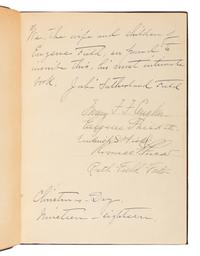 We, the wife and children of
Eugene Field, are
this, his most intimate
book. Julia Sutherland Field
Mary F. F.
Eugene Field II
Frederick S. Field
Roswell Field
Ruth Field
Christmas Day
Nineteen eighteen.